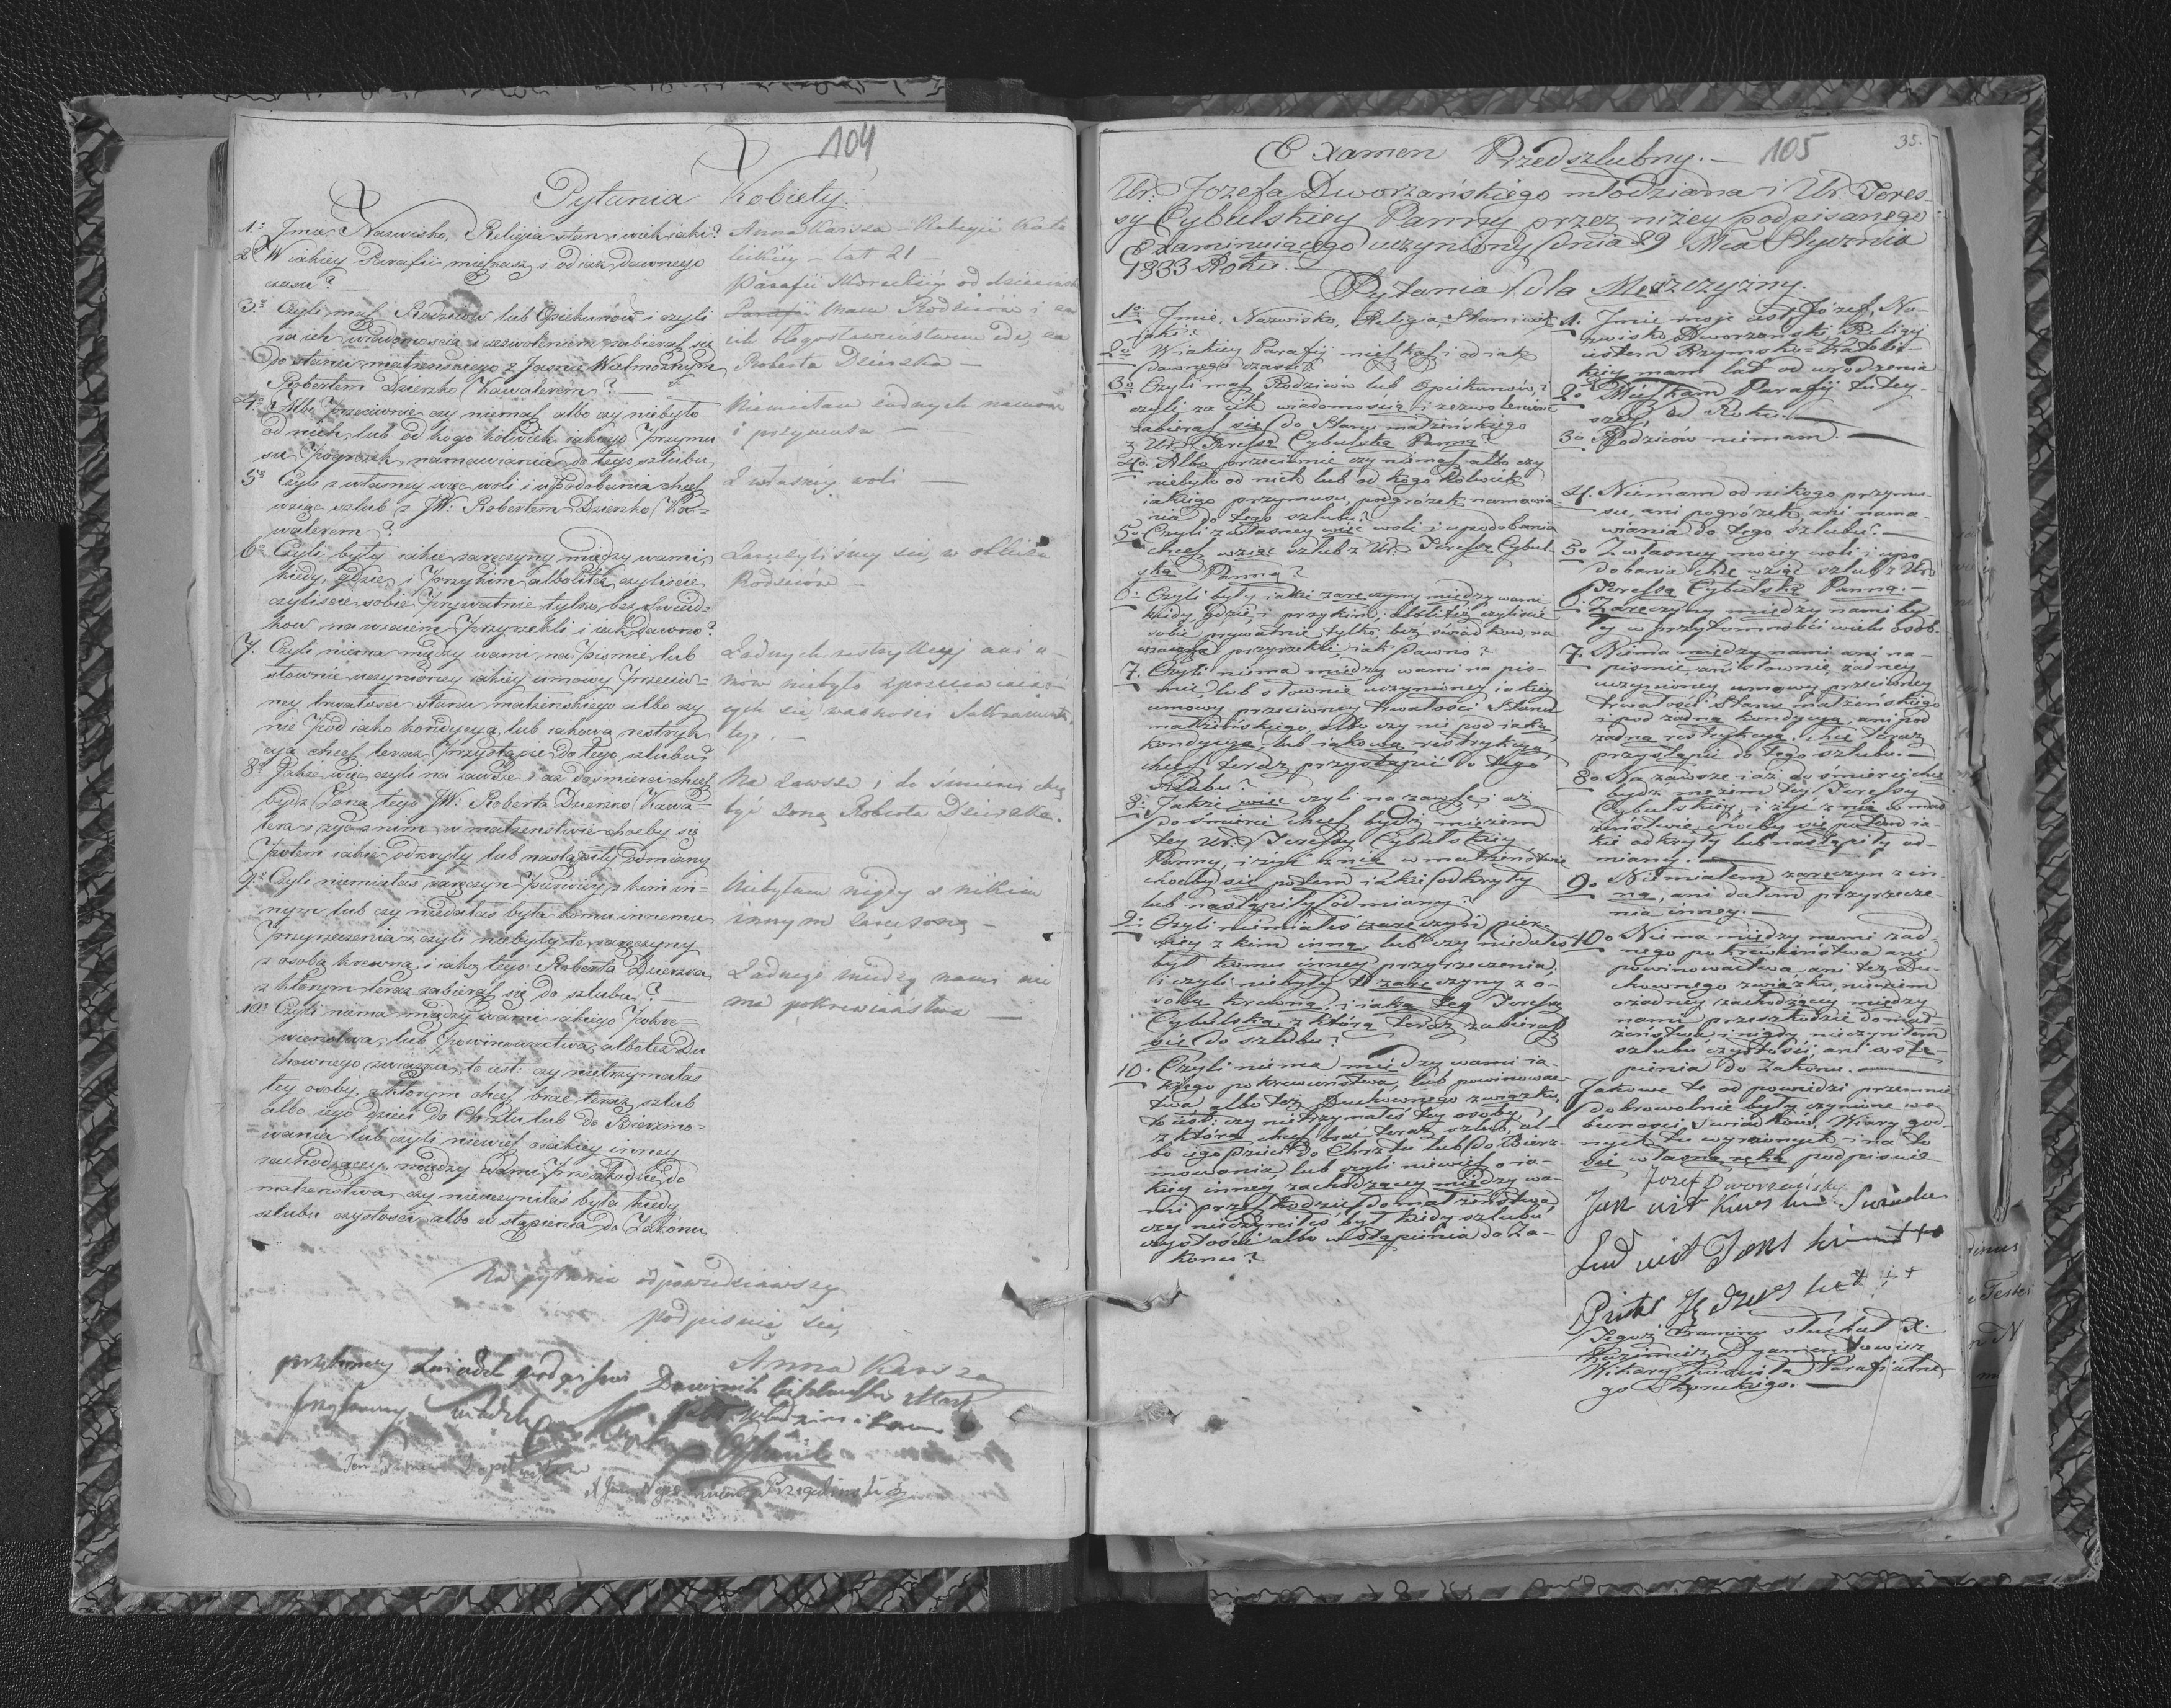 104
Pytania Kobiety.
1º Jmie, Nazwisko, Religia stan i wiek jaki?
2º W iakiey Parafii mieszkasz i od iak dawnego
czasu?
3º Czyli masz Rodziców lub Opiekunów i czyli
za ich wiadomością i zezwoleniem zabierasz się
do stanu małżeńskiego z Jaśnie Wielmożnym
Robertem Dzierzko Kawalerem?
4º Albo przeciwnie czy niemasz albo czy niebyło
od nich lub od kogo kolwiek iakiego przymu
su, pogrożek, namawiania do tego szlubu
5º Czyli z własney więc woli i upodobania chcesz
wziąć szlub z JW: Robertem Dzierzko Ka=
walerem?
6º Czyli były iakie zaręczyny między wami,
kiedy, gdzie, i przy kim, albo też czyliście
czyliscie sobie prywatnie tylko, bez świad=
ków na wzaiem przyrzekli i iak dawno?
7. Czyli niema między wami na piśmie lub
słownie uczynioney iakiey umowy przeciw=
ney trwałości stanu małżeńskiego albo czy
nie pod iaką kondycyą, lub iakową restryk
cyą chcesz teraz przystąpić do tego szlubu?
8º Jakże więc czyli na zawsze i aż do śmierci chcesz
bydź Żoną tego JW: Roberta Dzierzko Kawa=
lera i żyć z nim w małżeństwie choćby się
potem iakie odkryły lub nastąpiły odmiany
9º Czyli niemiałaś zaręczyn pierwiey z kim in=
nym lub czy niedałaś była komu innemu
przyrzeczenia, czyli niebyły te zaręczyny
z osobą krewną, i iaką tego Roberta Dzierzka
z którym teraz zabierasz się do szlubu?
10º Czyli niema między wami iakiego pokre=
wieństwa, lub powinowactwa, albo też Du
chownego związku, to iest: czy nietrzymałaś
tey osoby, z którym chcesz brać teraz szlub
albo iego dzieci do Chrztu lub do Bierzmo=
wania lub czyli niewiesz o iakiey inney
zachodzącey między wami przeszkodzie do
małżeństwa, czy nieuczyniłaś była kiedy
szlubu czystości albo wstąpienia do Zakonu
Anna Karsza – Religii Kato
lickiey – lat 21
Parafii Skoruckiey od dzieciń
Parafii Mam Rodziców i za
ich błogosławieństwem idę, za
Roberta Dzierzka –
Niemiałam żadnych namow
i przymusu –
Z własnéy woli –
Zaręczyliśmy się w obliczu
Rodziców –
Żadnych restrykcyj ani u-
mów niebyło sprzeciwiaią-
cych się ważności Sakramentu
tego. –
Na zawsze i do śmierci chcę
być żoną Roberta Dzierzka.
Niebyłam nigdy z nikim
innym zaręczoną –
Żadnego między nami nie
ma pokrewieństwa –
Na pytania odpowiedziawszy
podpisuię się
Anna Karsza
przytomny świadek podpisuię Dominik
przytomny świadek
105
35.
Examen Przedszlubny. –
Ur. Jozefa Dworzańskiego młodziana i Ur. Teres
sy Cybulskiey Panny przez niżey podpisanego
Examinuiącego uczyniony dnia 29 Mca Stycznia
1833 Roku. –
Pytania dla Męzczyzny.
1º Jmie, Nazwisko, Religia, Stan i wiek
jaki?
2º W iakiey Parafij mieszkasz i od iak
dawnego czasu?
3º Czyli masz Rodziców lub Opiekunów,
czyli za ich wiadomością i zezwoleniem
zabierasz się do Stanu małżeńskiego
z Ur. Teressą Cybulską Panną?
4º Albo przeciwnie czy niemasz albo czy
niebyło od nich lub od kogo kolwiek
iakiego przymusu, podgróżek namawia-
nia do tego szlubu?
5º Czyli z własney więc woli i upodobania
chcesz wziąć szlub z Ur. Teressą Cybul-
ską Panną?
6: Czyli były iakie zaręczyny między wami
kiedy, gdzie, i przy kim, albo też czyliście
sobie prywatnie tylko, bez świadkow, na
wzaiem przyrzekli, iak dawno?
7. Czyli niema między wami na pis-
mie lub słownie uczynioney iakiey
umowy przeciwney trwałości Stanu
małżeńskiego, albo czy nie pod iaką
kondycyą lub iakową restrykcyą
chcesz teraz przystąpić do tego
Szlubu?
8: Jakże więc czyli na zawsze i aż
do śmierci chcesz bydź mężem
tey Ur. Teressy Cybulskiey
Panny, i żyć z nią w małżeństwie
choćby się potem iakie odkryły
lub nastąpiły odmiany?
9: Czyli niemiałeś zaręczyn pier-
wiey z kim inną lub czy niedałeś
był komu inney przyrzeczenia,
i czyli niebyły te zaręczyny z o-
sobą krewną i iaką tey Teressy
Cybulską, z którą teraz zabierasz
się do szlubu?
10. Czyli niema między wami ia-
kiego pokrewieństwa, lub powinowac-
twa albo też Duchownego związku,
to iest: czy nietrzymałeś tey osoby,
z którą chcesz brać teraz szlub, al-
bo iego dzieci do Chrztu lub do Bierz-
mowania, lub czyli niewiesz o ia-
kiey inney zachodzącey między wa-
mi przeszkodzie do małżeństwa,
czy nieuczyniłeś był kiedy szlubu
czystości albo wstąpienia do Za-
konu?
1. Jmie moje iest Józef, Na-
zwisko Dworzański, Religij
iestem Rzymsko=Katolic-
kiey mam lat od urodzenia
2º Mieszkam Parafij tutey-
szey, od Roku. –
3º Rodziców niemam. –
4. Niemam od nikogo przymu-
su, ani pogrózek, ani nama-
wiania do tego szlubu. –
5º Z własney moiey woli i upo
dobania chcę wziąć szlub z Ur.
Teressą Cybulską Panną. –
6: Zaręczyny między nami by-
ły w przytomności wielu osób.
7. Niema między nami ani na-
pismie, ani słownie, żadney
uczynioney umowy przeciwney
trwałości Stanu małżeńskiego
i pod żadną kondycyą, ani pod
żadną restrykcyą, chcę teraz
przystąpić do tego szlubu. –
8º Na zawsze i aż do śmierci chcę
bydź mężem tey Teressy
Cybulskiey, i żyć z nią w mał
żeństwie, choćby się potem ia-
kie odkryły lub nastąpiły od-
miany. –
9º Niemiałem zaręczyn z in-
ną, ani dałem przyrzecze-
nia inney. –
10º Niema między nami żad
nego pokrewieństwa ani
powinowactwa ani też Du-
chownego związku, niewiem
o żadney zachodzącey między
nami przeszkodzie do mał
żeństwa, i nigdy nieczyniłem
szlubu czystości, ani wstą-
pienia do Zakonu. –
Jakowe te odpowiedzi przezemnie
dobrowolnie były czynione w o
becności Świadków, Wiary god-
nych tu wyrażonych, i na to
się własną ręką podpisuię
Jozef Dworzański
Tegoż Examinu słuchał X.
Kazimierz Dyamentowicz
Wikary Kościoła Parafialne-
go Skoruckiego. –